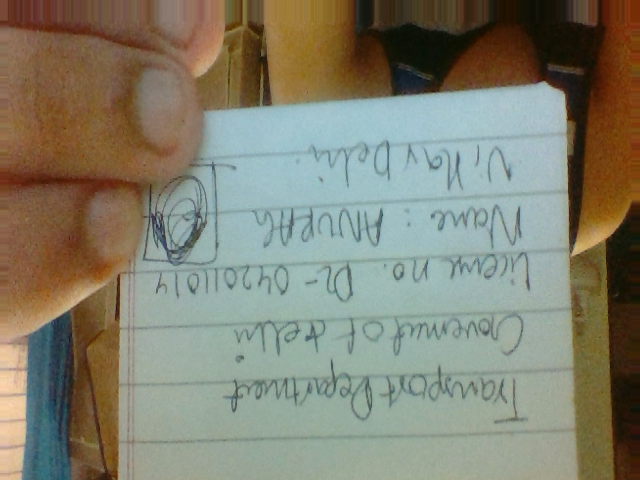 Transport Department
Goverment of delhi
License no. DL-042011014
Name : ANURAG
Vihav Delhi.